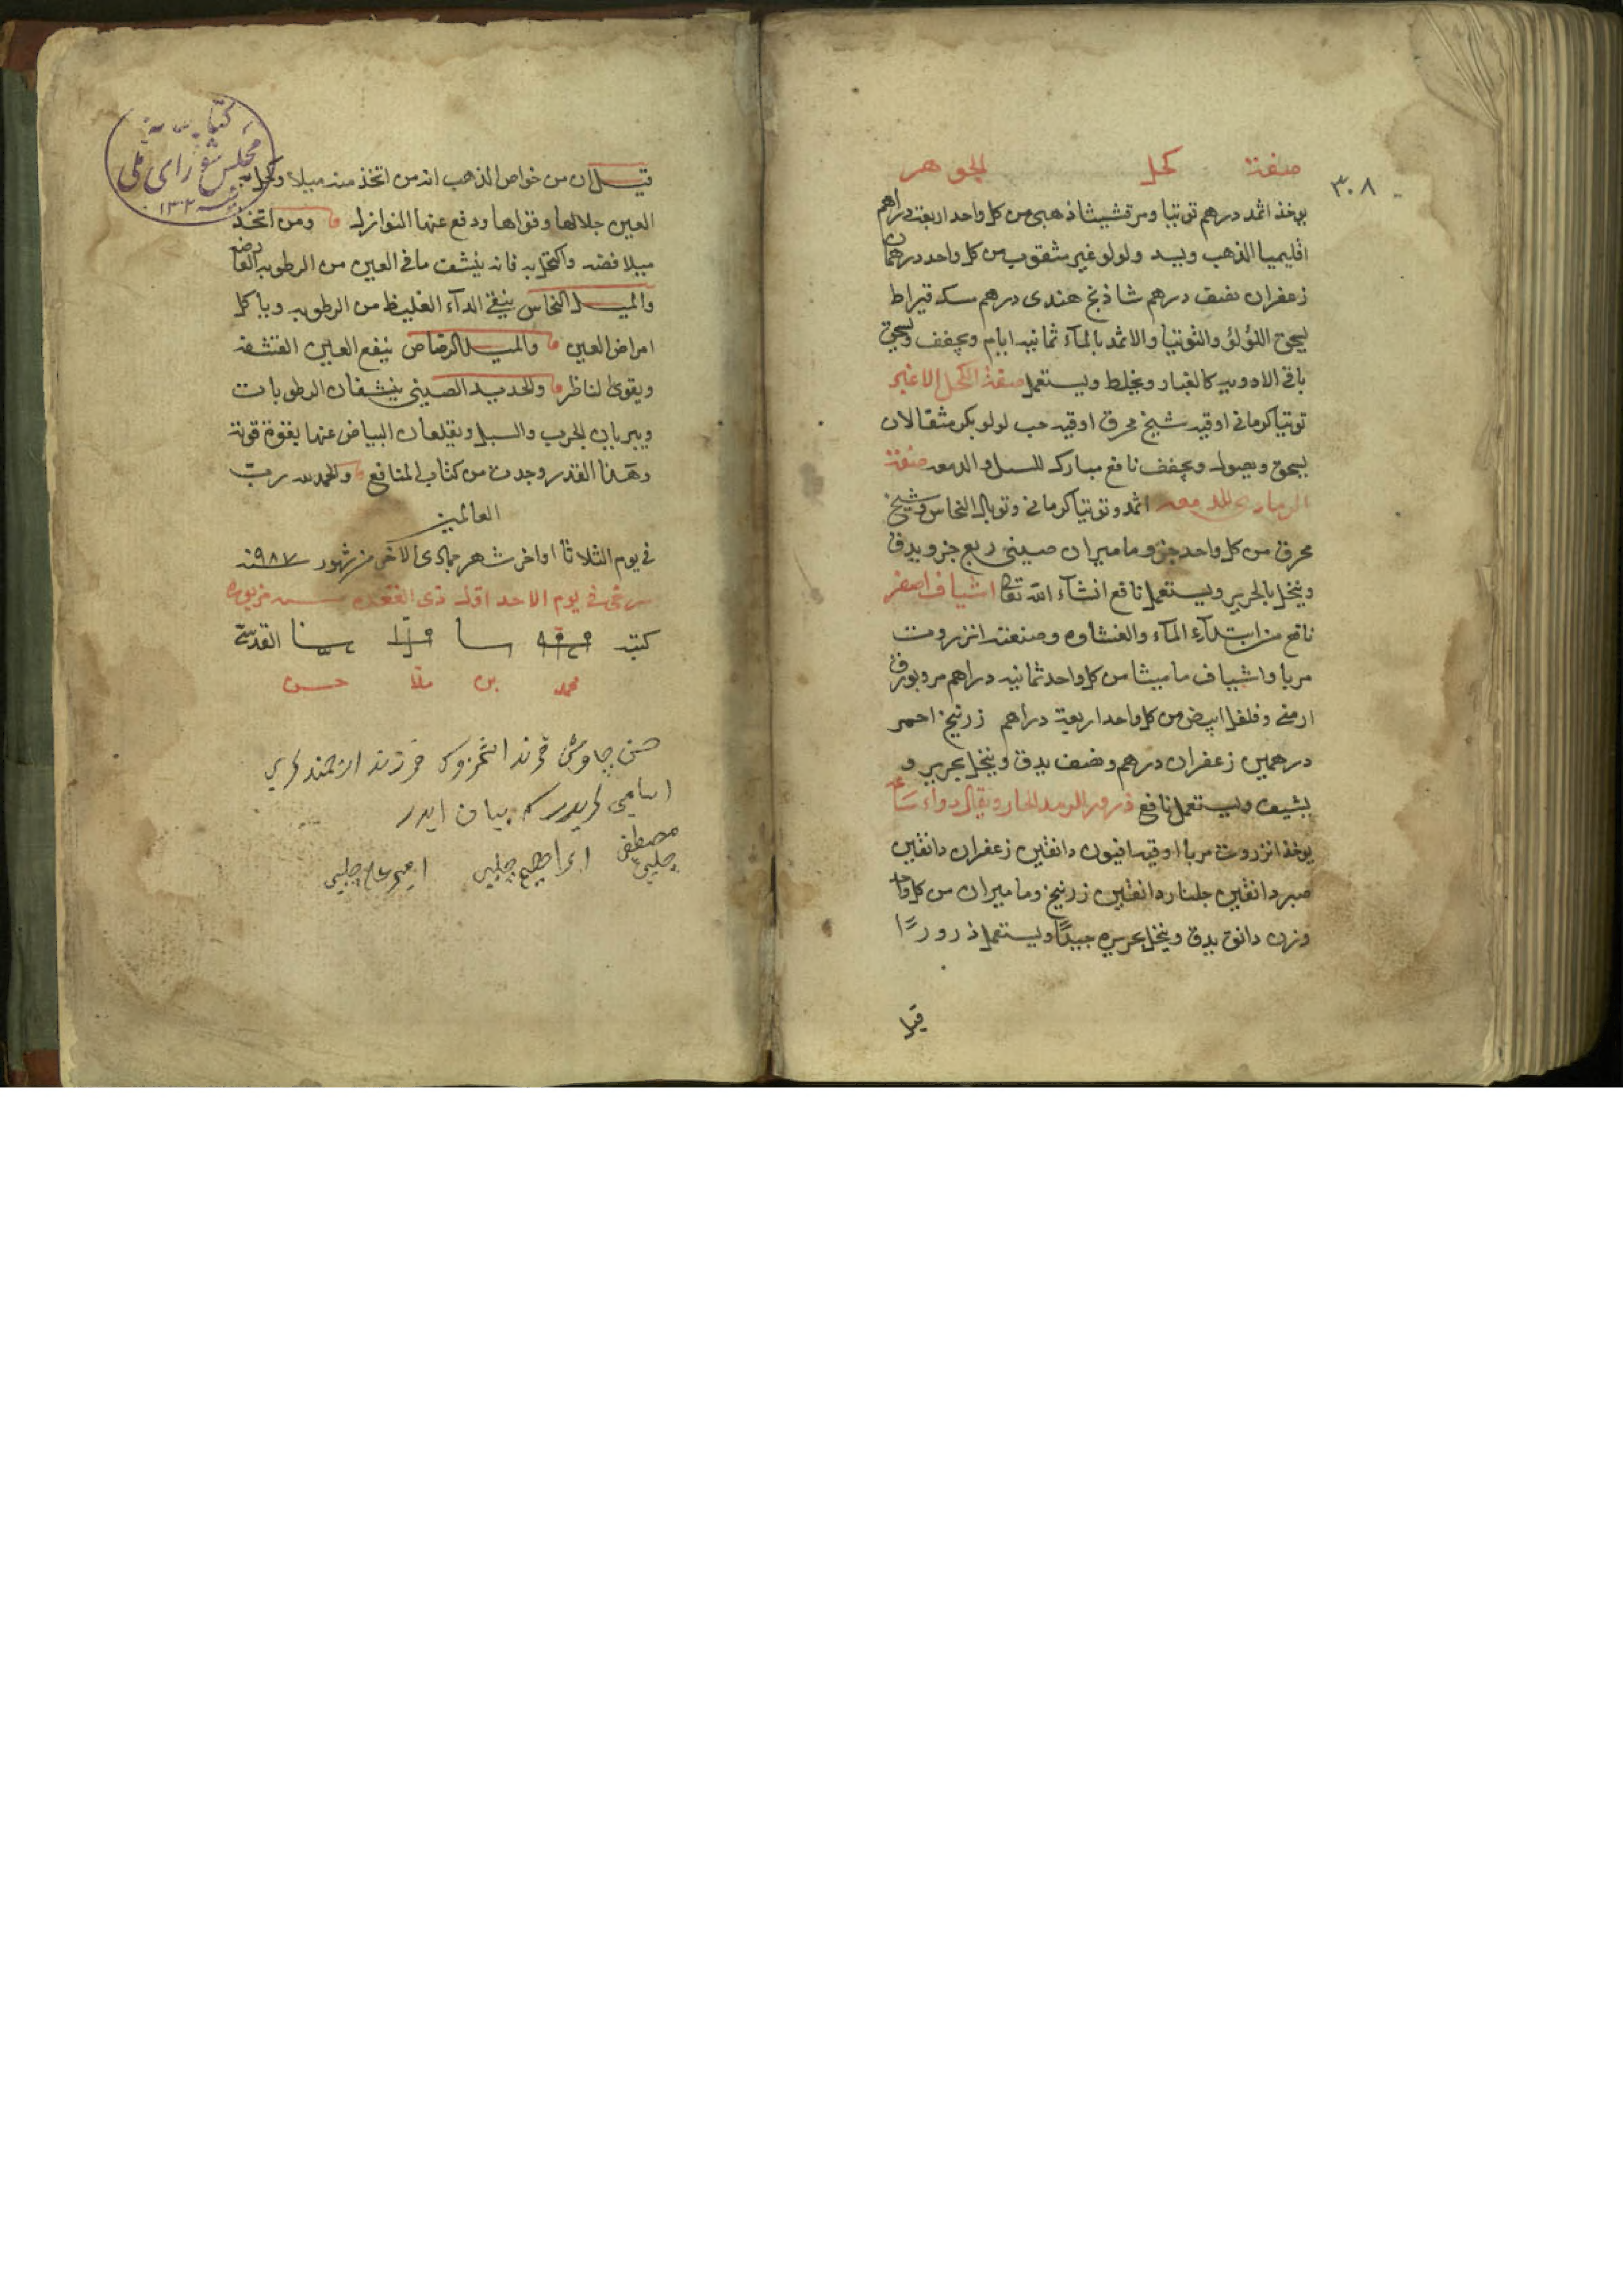 صفة كحل الجوهر
٣٠٨
يوخذ اثمد درهم توتيا ومرقشيثا ذهبى من كل واحد اربعة دراهم
اقليميا الذهب وبسد ولولو غير مثقوب من كل واحد درهمان
زعفران نصف درهم شاذنج هندى درهم مسك قيراط
يسحق اللؤلؤ والتوتيا والاثمد بالمآء ثمانيه ايام ويجفف ويسحق
باقى الادويه كالغبار ويخلط ويستعمل صفة الكحل الاغبر
توتيا كرمانى اوقيه شيخ محرق اوقيه حب لولو بكر مثقالان
يسحق ويصول ويجفف نافع مبارك للسبل والدمعه صفة
الرمادى للدمعه اثمد وتوتيا كرمانى وتوبال النحاس وشيخ
محرق من كل واحد جزو ماميران صينى ربع جزو يدق
وينخل بالحرير ويستعمل نافع انشآء الله تعالى اشياف اصفر
نافع من ابتدآء المآء والغشاوه وصنعته انزروت
مربا واشياف ماميثا من كل واحد ثمانيه دراهم مر وبورق
ارمنى وفلفل ابيض من كل واحد اربعة دراهم زرنيخ احمر
درهمين زعفران درهم ونصف يدق وينخل بحرير و
يشيف ويستعمل نافع ذرور للرمد الحار ويقال دواء ساعه
يوخذ انزروت مربا اوقيه افيون دانقين زعفران دانقين
صبر دانقين جلنار دانقين زرنيخ وماميران من كل واحد
وزن دانق يدق وينخل بحريره جيدًا ويستعمل ذرورًا
قيل
كتابخانه
مجلس شوراى ملى
١٣٠٢
قيل ان من خواص الذهب انه من اتخذ منه ميلا وكحل به
العين جلالها وقواها ودفع عنها النوازل ومن اتخذ
ميلا فضه واكتحل به فانه ينشف ما فى العين من الرطوبه
والميل النحاس ينقى الدآء الغليظ من الرطوبه وياكل
امراض العين والميل الرصاص ينفع العين القشفة
ويقوى الناظر والحديد الصينى ينشفان الرطوبات
ويبريان الجرب والسبل ويقلعان البياض عنها بقوة قوية
وهذا القدر وجدت من كتاب المنافع والحمد لله رب
العالمين
فى يوم الثلاثا اواخر شهر جمادى الاخر من شهور سنه ٩٨٧
فى يوم الاحد اول ذى القعده سنه مزبوره
كتبه القدسى
محمد بن ملا حسن
حسن چاوش فرزند ارجمندلرى
اسامى لريدر كه بيان ايدر
مصطفى چلبى ابراهيم چلبى چلبى